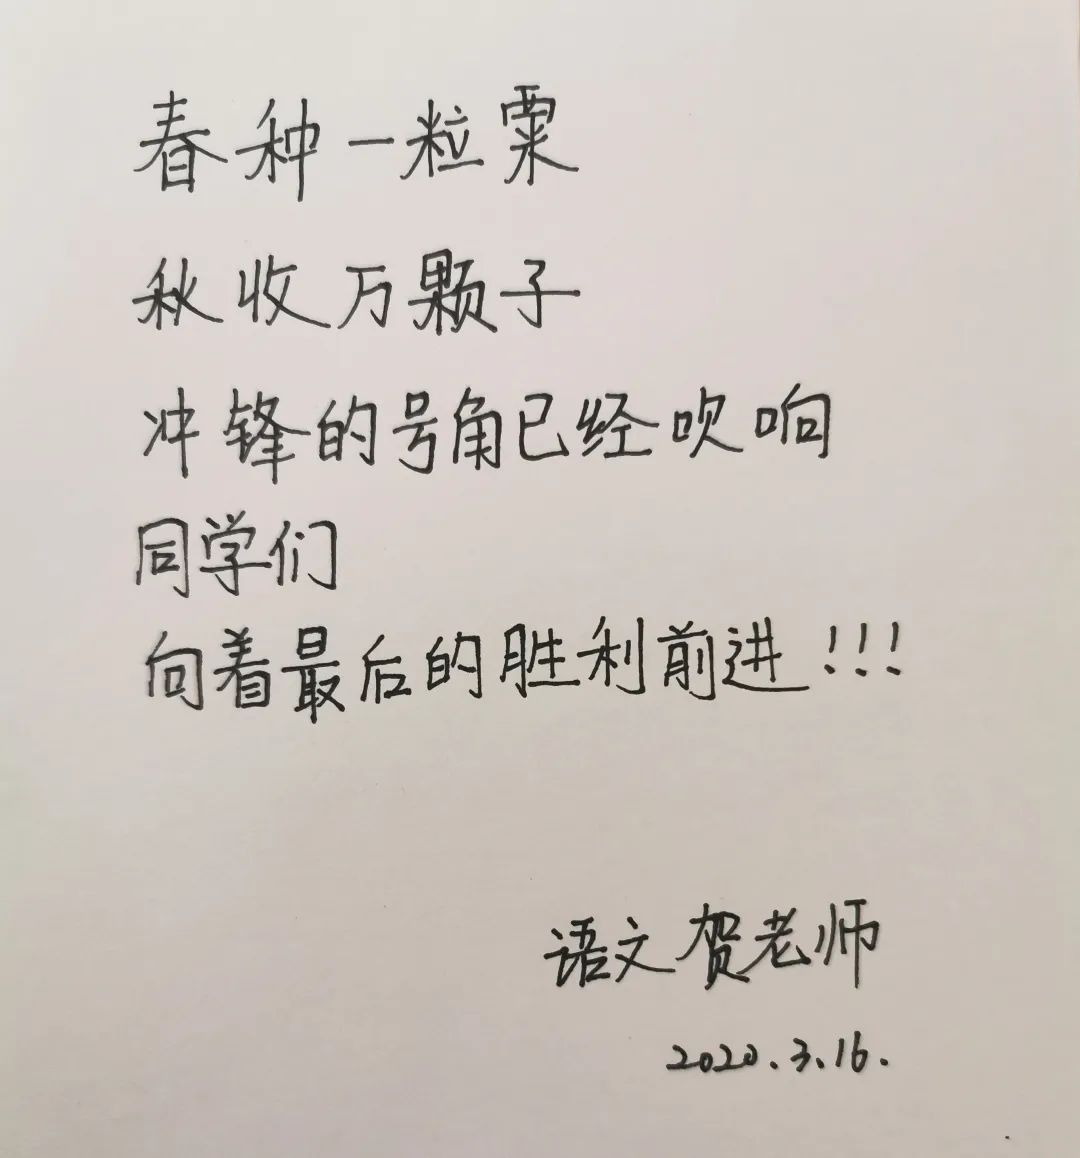 春种一粒粟
秋收万颗子
冲锋的号角已经吹响
同学们
向着最后的胜利前进!!!
语文 贺老师
2020.3.16.